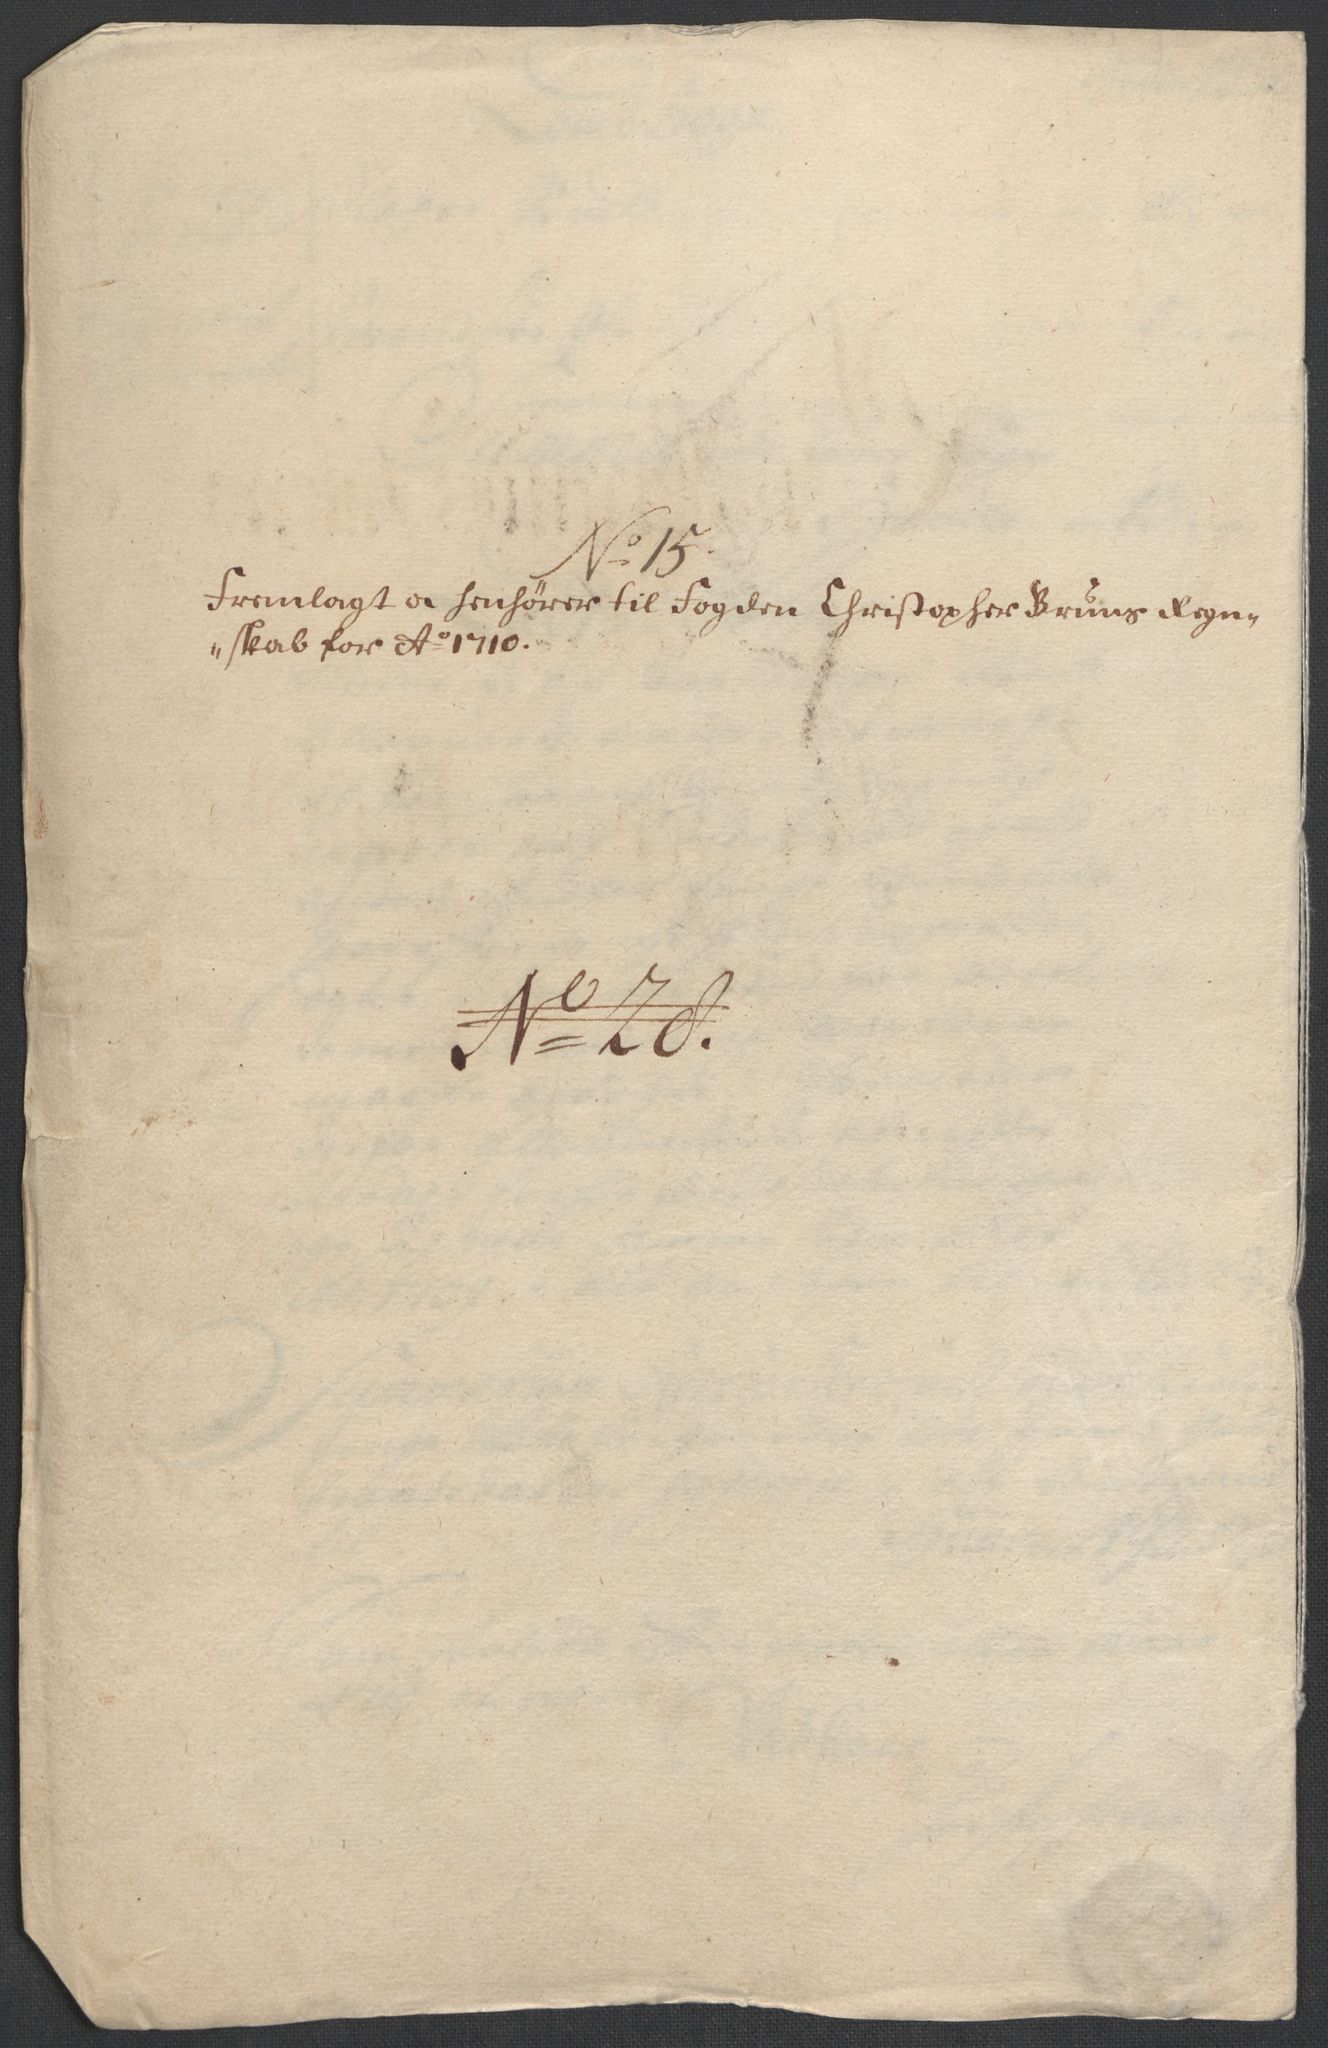 No 15.
Fremlagt oc henhører til Fogden Christopher Bruns Regn=
"skab for Ao 1710.
No 28.